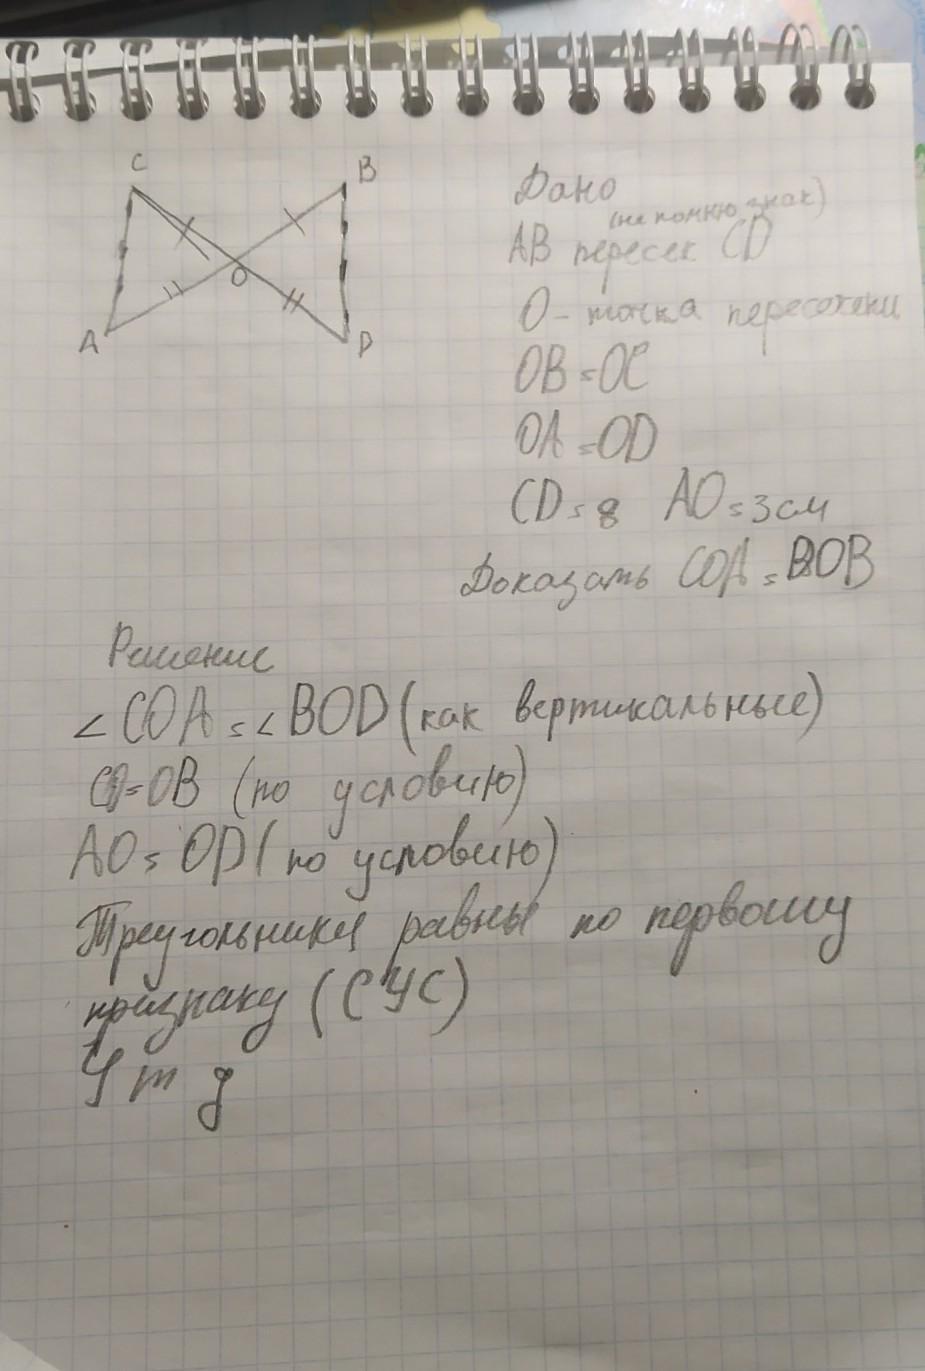 C
B
O
A
D
Дано
(не помню знак)
АВ пересек CD
О - точка пересечени
OB = OC
OA = OD
CD = 8 AO = 3 см
Доказать COA = BOB
Решение
∠COA = ∠BOD (как вертикальные)
CO = OB (по условию)
AO = OD (по условию)
Треугольники равны по первому
признаку (СУС)
Ч т д